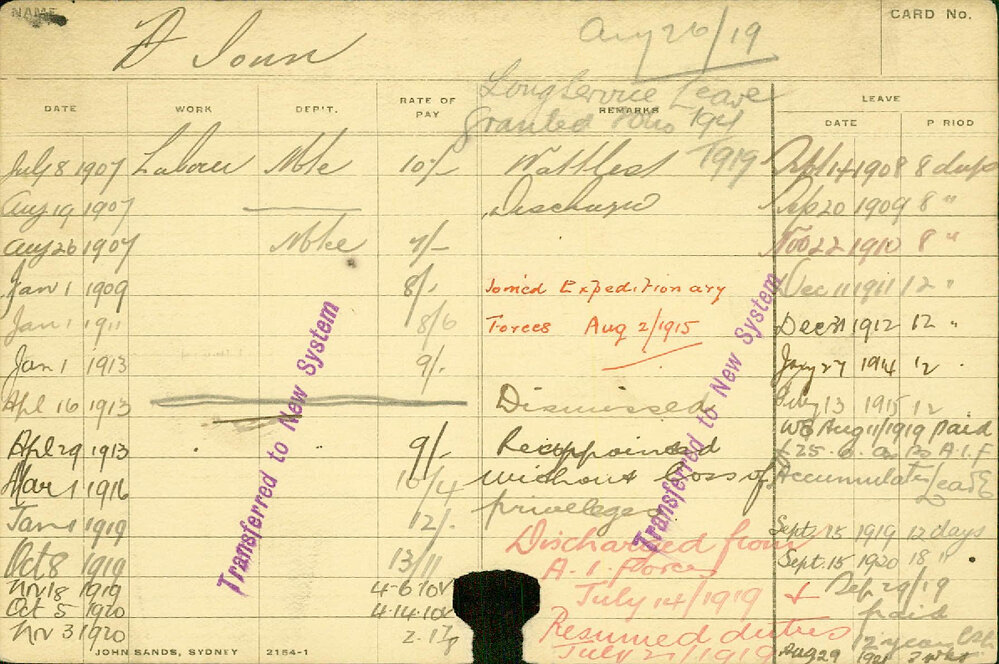 NAME
CARD No.
Aug 26/19
Long Service Leave
granted 1919
DATE WORK DEP'T. RATE OF PAY REMARKS LEAVE
DATE P RIOD
July 8 1907 Labour 10/- Apl 14 1908 8 days
Aug 19 1907 Sep 20 1909 8 "
Aug 26 1907 7/- Nov 22 1910 8 "
Jan 1 1909 8/- Joined Expeditionary Dec 11 1911 12 "
Jan 1 1911 8/6 Forces Aug 2/1915 Dec 31 1912 12 "
Jan 1 1913 9/- Jany 27 1914 12 "
Apl 16 1913 Dismissed July 13 1915 12
Apl 29 1913 " " 9/- Reappointed WE Aug 11/1919 paid
Mar 1 1916 10/4 without loss of Accumulated Leave
Jan 1 1919 12/- privileges Sept. 15 1919 12 days
Oct 8 1919 13/11 Discharged from Sept. 15 1920 18 "
Nov 18 1919 A. I. Forces Sep 29/19
Oct 5 1920 July 14/1919 paid
Nov 3 1920 Resumed duties
July 21/1919 Aug 29
Transferred to New System
Transferred to New System
JOHN SANDS, SYDNEY 2154-1